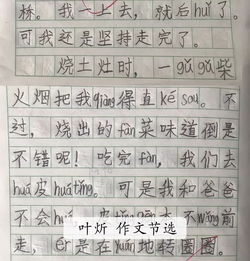 桥。我一上去，就后huǐ了。
可我还是坚持走完了。
烧土灶时，一gǔgǔ柴
火烟把我qiàng得直ké sou。不
过，烧出的fàn菜味道倒是
不错呢！吃完fàn，我们去
huá皮huátǐng。可是我和爸爸
不会huá，
前
走，ér是在yuán地转圈圈。
叶炘 作文节选